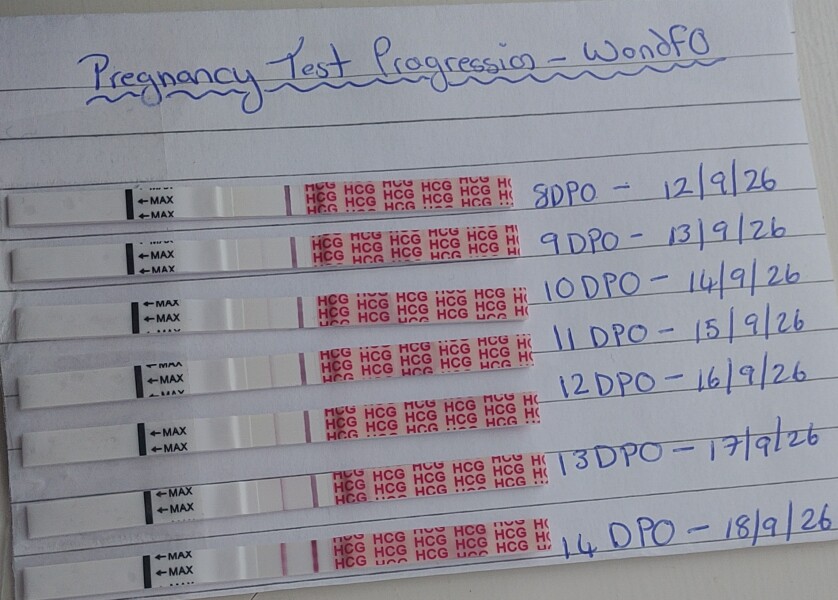 Pregnancy Test Progression - Wondfo
←MAX
←MAX
HCG HCG HCG HCG HCG
HCG HCG HCG HCG HCG
8DPO - 12/9/26
←MAX
←MAX
HCG HCG HCG HCG HCG
HCG HCG HCG HCG HCG
9DPO - 13/9/26
←MAX
←MAX
HCG HCG HCG HCG HCG
HCG HCG HCG HCG HCG
10DPO - 14/9/26
←MAX
←MAX
HCG HCG HCG HCG HCG
HCG HCG HCG HCG HCG
11DPO - 15/9/26
←MAX
←MAX
HCG HCG HCG HCG HCG
HCG HCG HCG HCG HCG
12DPO - 16/9/26
←MAX
←MAX
HCG HCG HCG HCG HCG
HCG HCG HCG HCG HCG
13DPO - 17/9/26
←MAX
←MAX
HCG HCG HCG HCG HCG
HCG HCG HCG HCG HCG
14DPO - 18/9/26